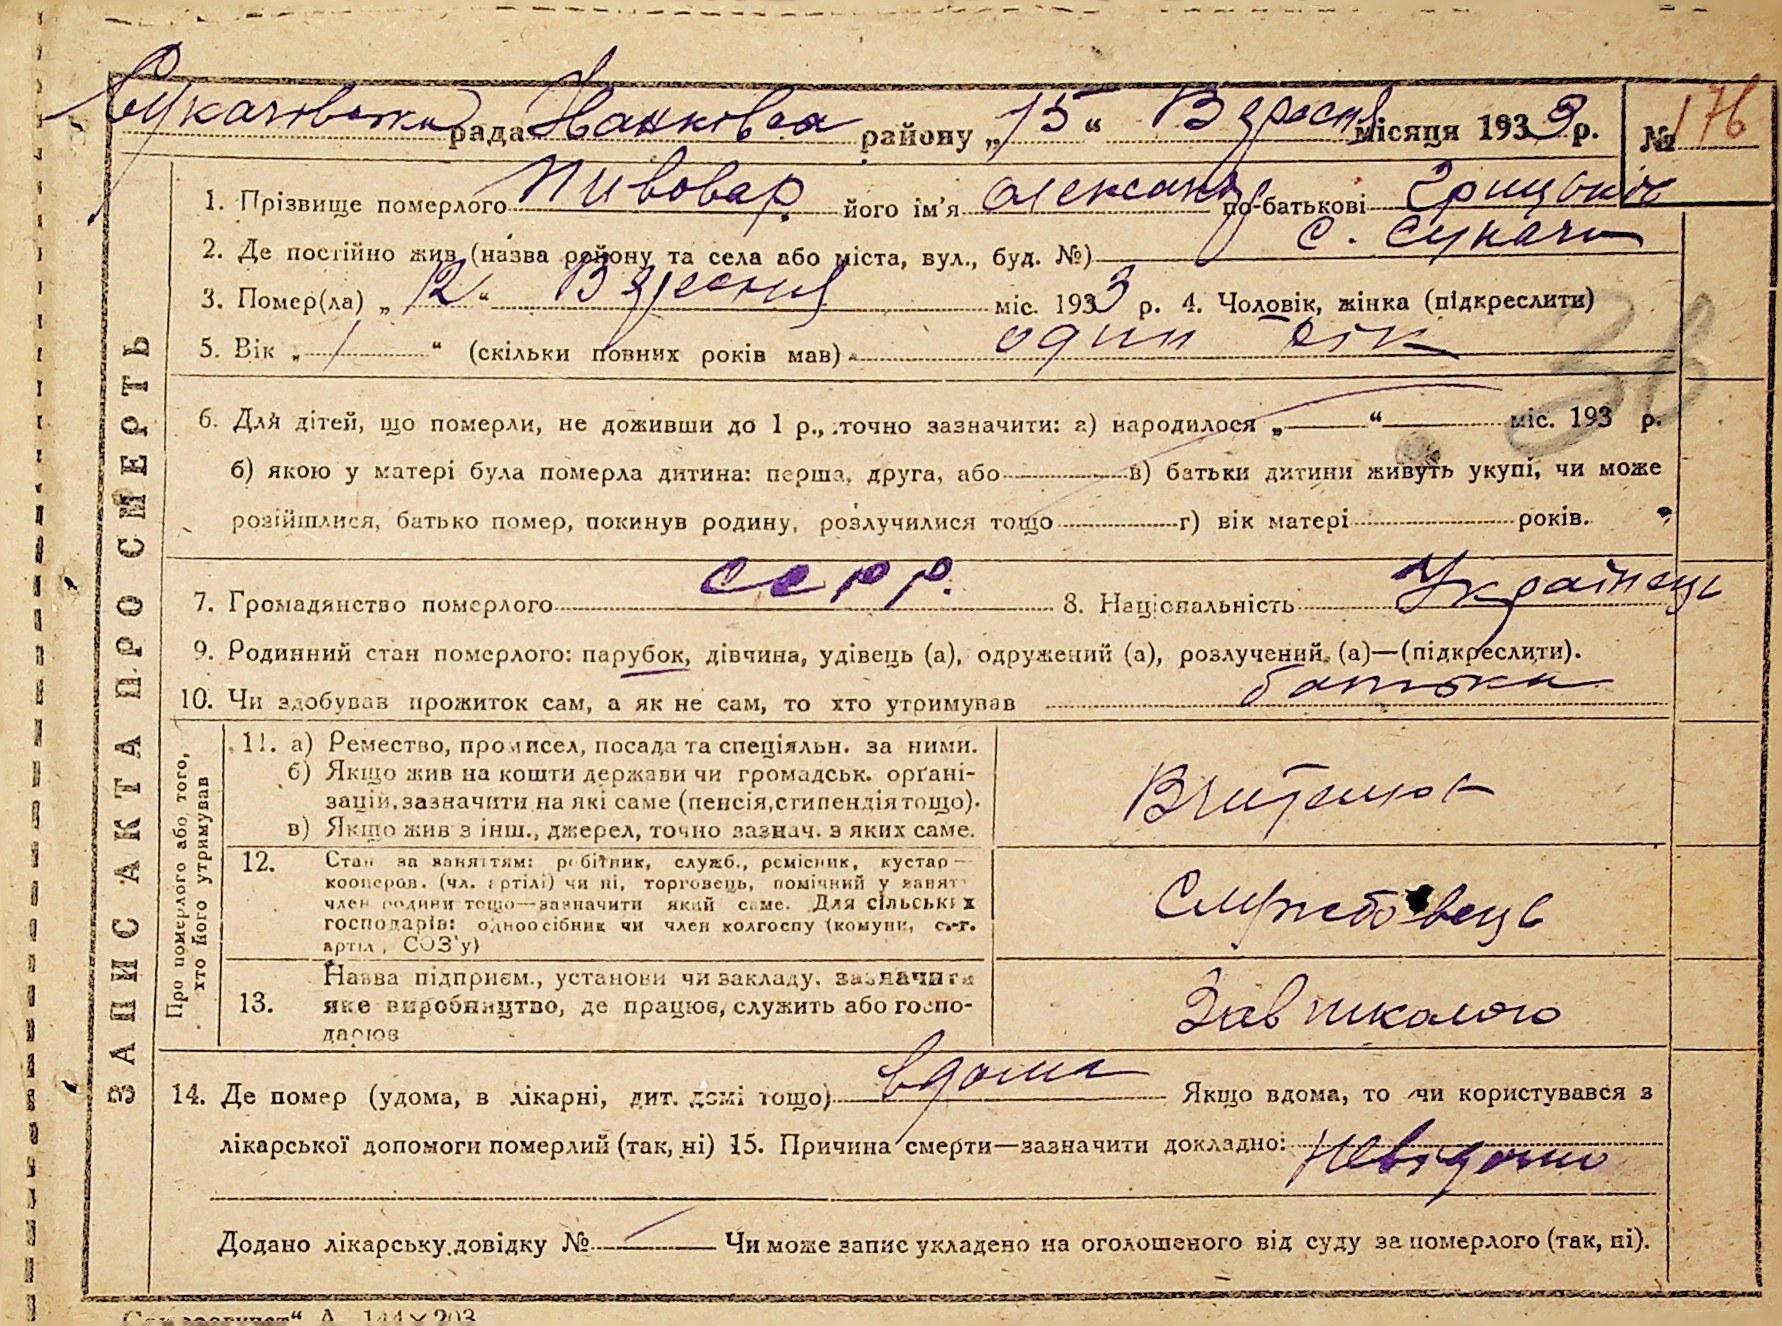 Сукачовська рада Іванковск району „15“ Вересня місяця 1933 р. № 176
ЗАПИС АКТА ПРО СМЕРТЬ
1. Прізвище померлого Пивовар його ім'я олександр по-батькові Грицьків
2. Де постійно жив (назва району та села або міста, вул., буд. №) с. Сукачи
3. Помер(ла) „12“ Вересня міс. 1933 р. 4. Чоловік, жінка (підкреслити)
5. Вік „1“ (скільки повних років мав) один рік
6. Для дітей, що померли, не доживши до 1 р., точно зазначити: а) народилося „ “ міс. 193 р.
б) якою у матері була померла дитина: перша, друга, або в) батьки дитини живуть укупі, чи може
розійшлися, батько помер, покинув родину, розлучилися тощо г) вік матері років.
7. Громадянство померлого ссрр. 8. Національність Українець
9. Родинний стан померлого: парубок, дівчина, удівець (а), одружений (а), розлучений (а)—(підкреслити).
10. Чи здобував прожиток сам, а як не сам, то хто утримував батьки
Про померлого або того,
хто його утримував
11. а) Ремество, промисел, посада та спеціяльн. за ними.
б) Якщо жив на кошти держави чи громадськ. орґані-
зацій, зазначити на які саме (пенсія, стипендія тощо).
в) Якщо жив з інш., джерел, точно зазнач. з яких саме.
Вчителюк
12. Стан за заняттям: робітник, служб., ремісник, кустар—
кооперов. (чл. артілі) чи ні, торговець, помічний у занят
член родини тощо—зазначити який саме. Для сільських
господарів: одноосібник чи член колгоспу (комуни, с.-г.
артіл, СОЗ'у)
Службовець
13. Назва підприєм., установи чи закладу, зазначити
яке виробництво, де працює, служить або госпо-
дарює
Зав школою
14. Де помер (удома, в лікарні, дит. домі тощо) вдома Якщо вдома, то чи користувався з
лікарської допомоги померлий (так, ні) 15. Причина смерти—зазначити докладно: невідомо
Додано лікарську довідку № Чи може запис укладено на оголошеного від суду за померлого (так, ні).
А 144×203